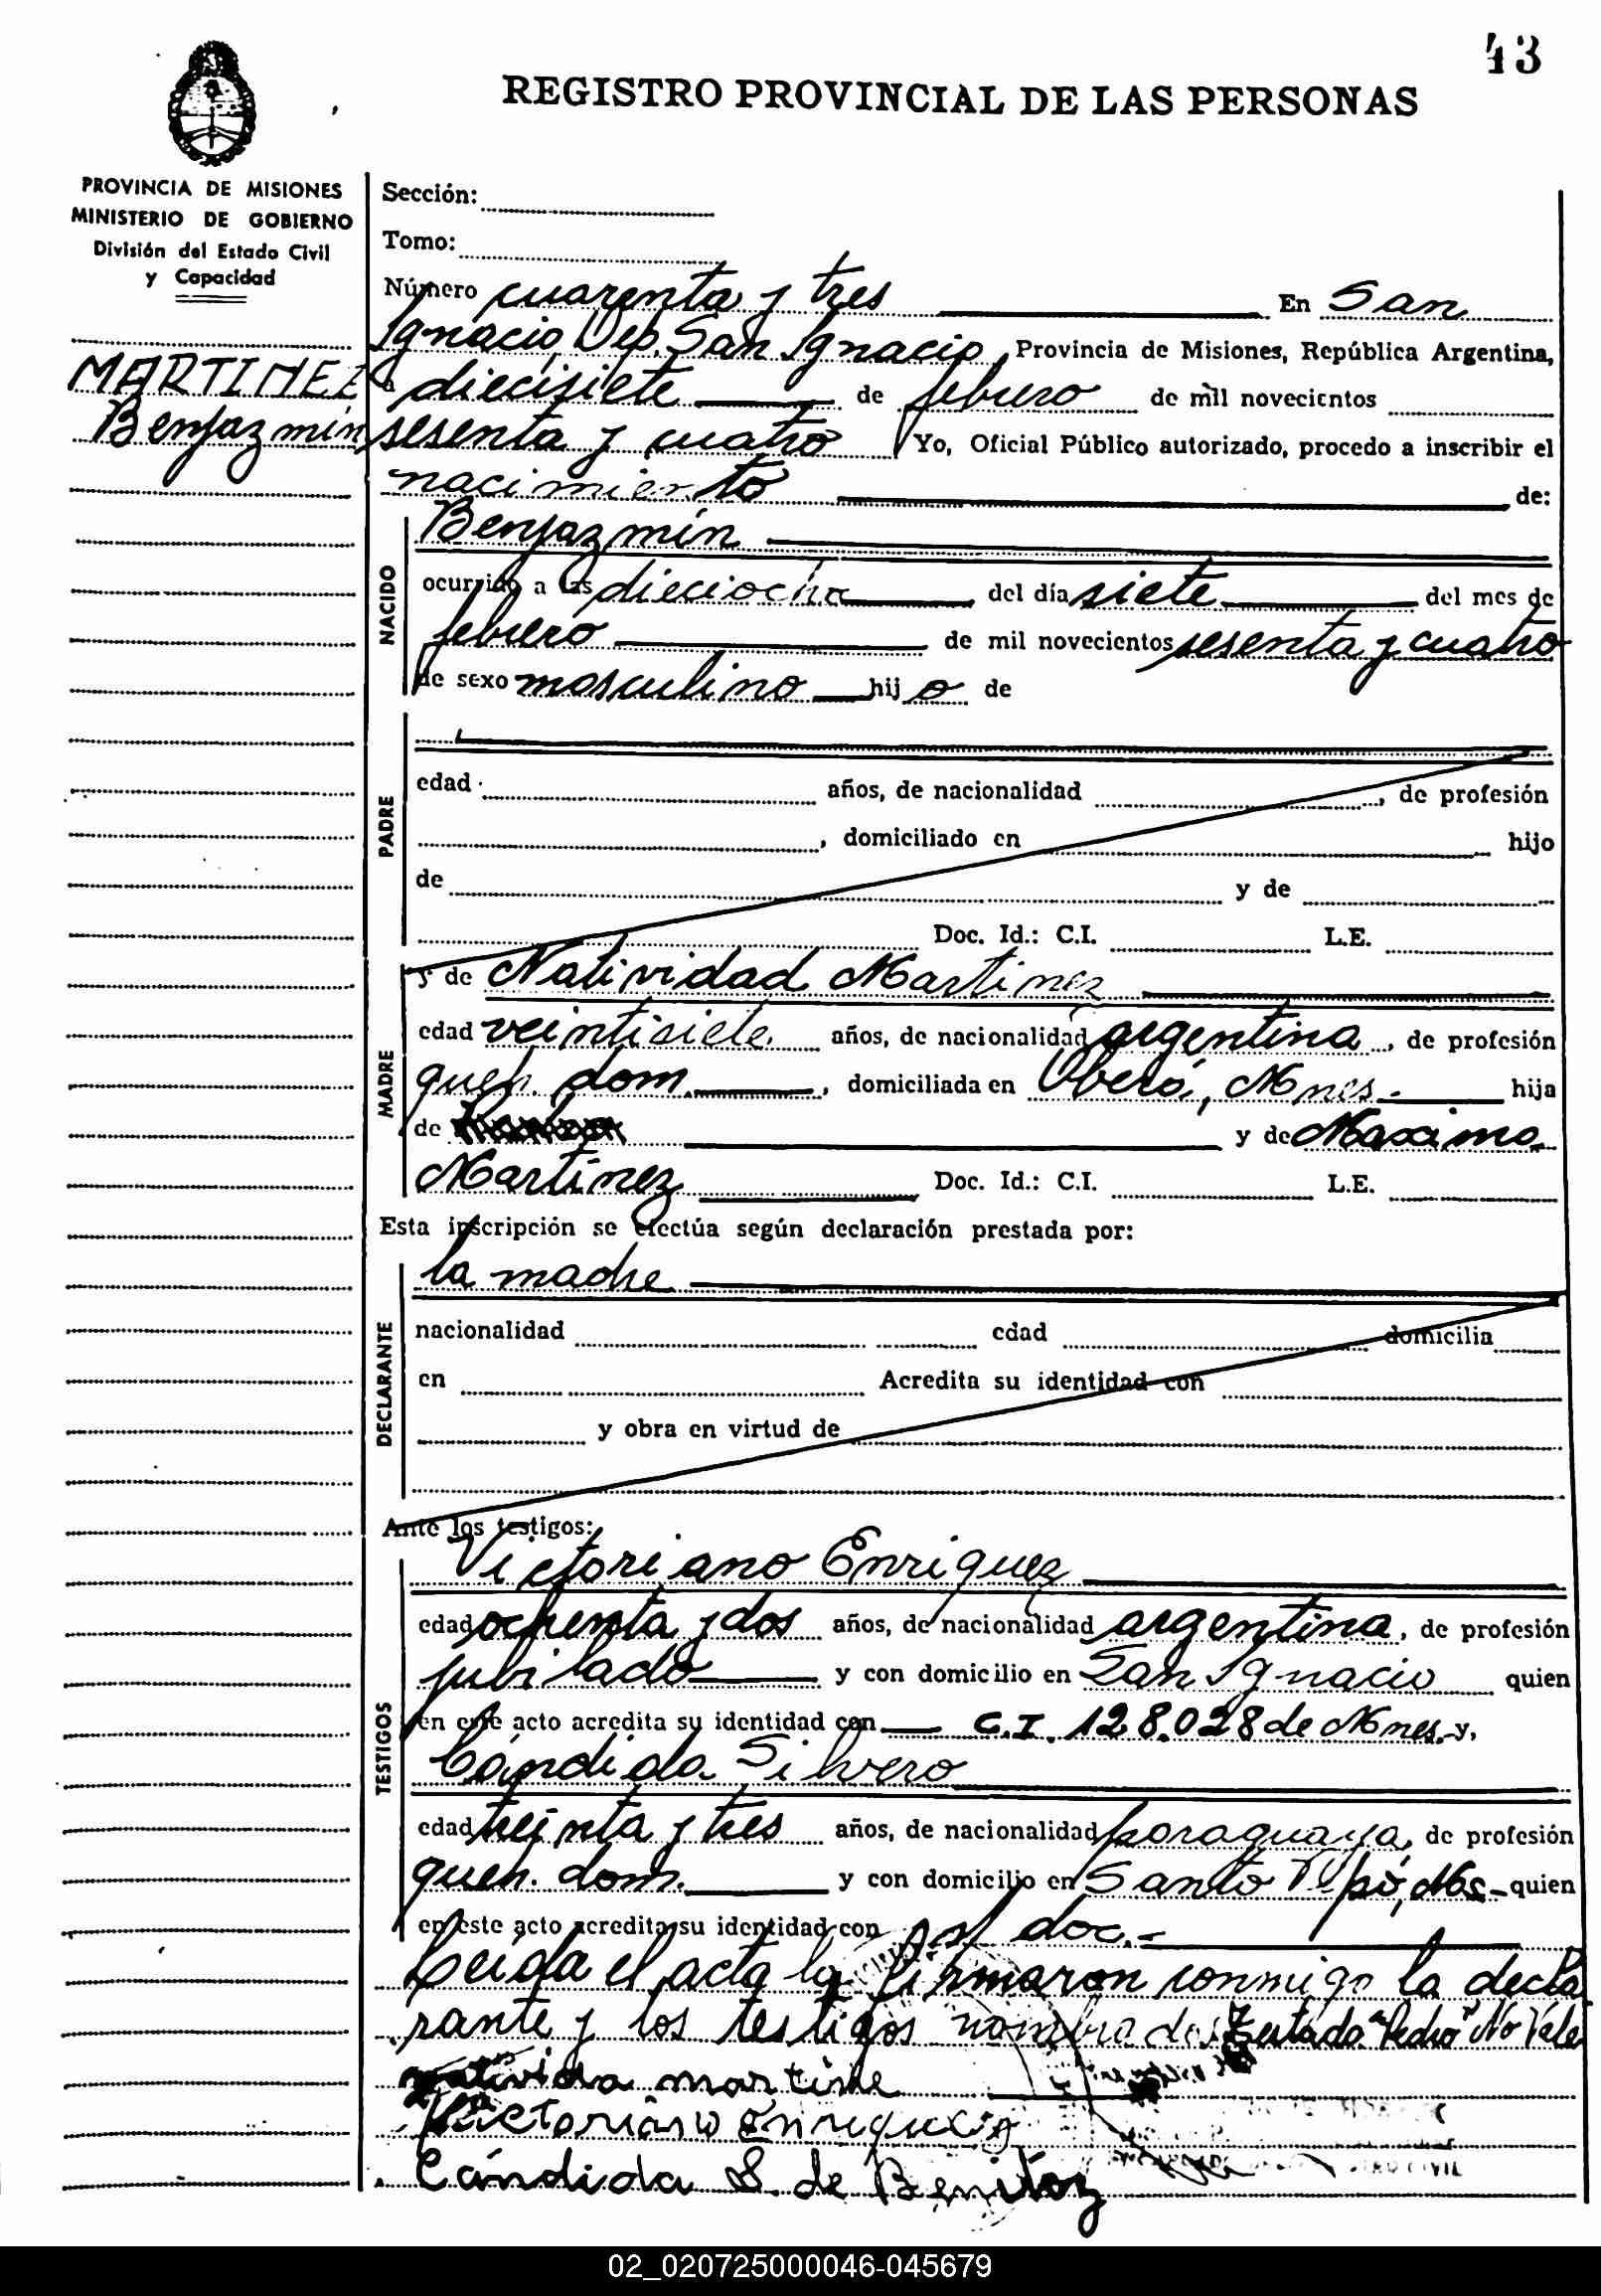 43
REGISTRO PROVINCIAL DE LAS PERSONAS
PROVINCIA DE MISIONES
MINISTERIO DE GOBIERNO
División del Estado Civil
y Capacidad
MARTINEZ
Benjazmín
Sección:
Tomo:
Número cuarenta y tres En San
Ignacio Dep. San Ignacio, Provincia de Misiones, República Argentina,
a diecisiete de febrero de mil novecientos
sesenta y cuatro Yo, Oficial Público autorizado, procedo a inscribir el
nacimiento de:
NACIDO
Benjazmín
ocurrido a las dieciocho del día siete del mes de
febrero de mil novecientos sesenta y cuatro
de sexo masculino hijo de
PADRE
edad años, de nacionalidad , de profesión
, domiciliado en hijo
de y de
Doc. Id.: C.I. L.E.
MADRE
y de Natividad Martinez
edad veintisiete años, de nacionalidad argentina, de profesión
queh. dom. , domiciliada en Oberá, Mnes.- hija
de y de Maximo
Martínez Doc. Id.: C.I. L.E.
Esta inscripción se efectúa según declaración prestada por:
DECLARANTE
la madre
nacionalidad edad domicilia
en Acredita su identidad con
y obra en virtud de
Ante los testigos:
TESTIGOS
Victoriano Enriquez
edad ochenta y dos años, de nacionalidad argentina, de profesión
jubilado y con domicilio en San Ignacio quien
en este acto acredita su identidad con C.I. 128.028 de Mnes. y,
Cándida Silvero
edad treinta y tres años, de nacionalidad paraguaya, de profesión
queh. dom. y con domicilio en Santo Pipó, Mns.- quien
en este acto acredita su identidad con s/ doc.-
Leída el acta la firmaron conmigo la decla
rante y los testigos nombrados Testado "Pedro" No Vale
natívida martine
Victoriano Enriquez
Cándida S. de Benitez
02_020725000046-045679